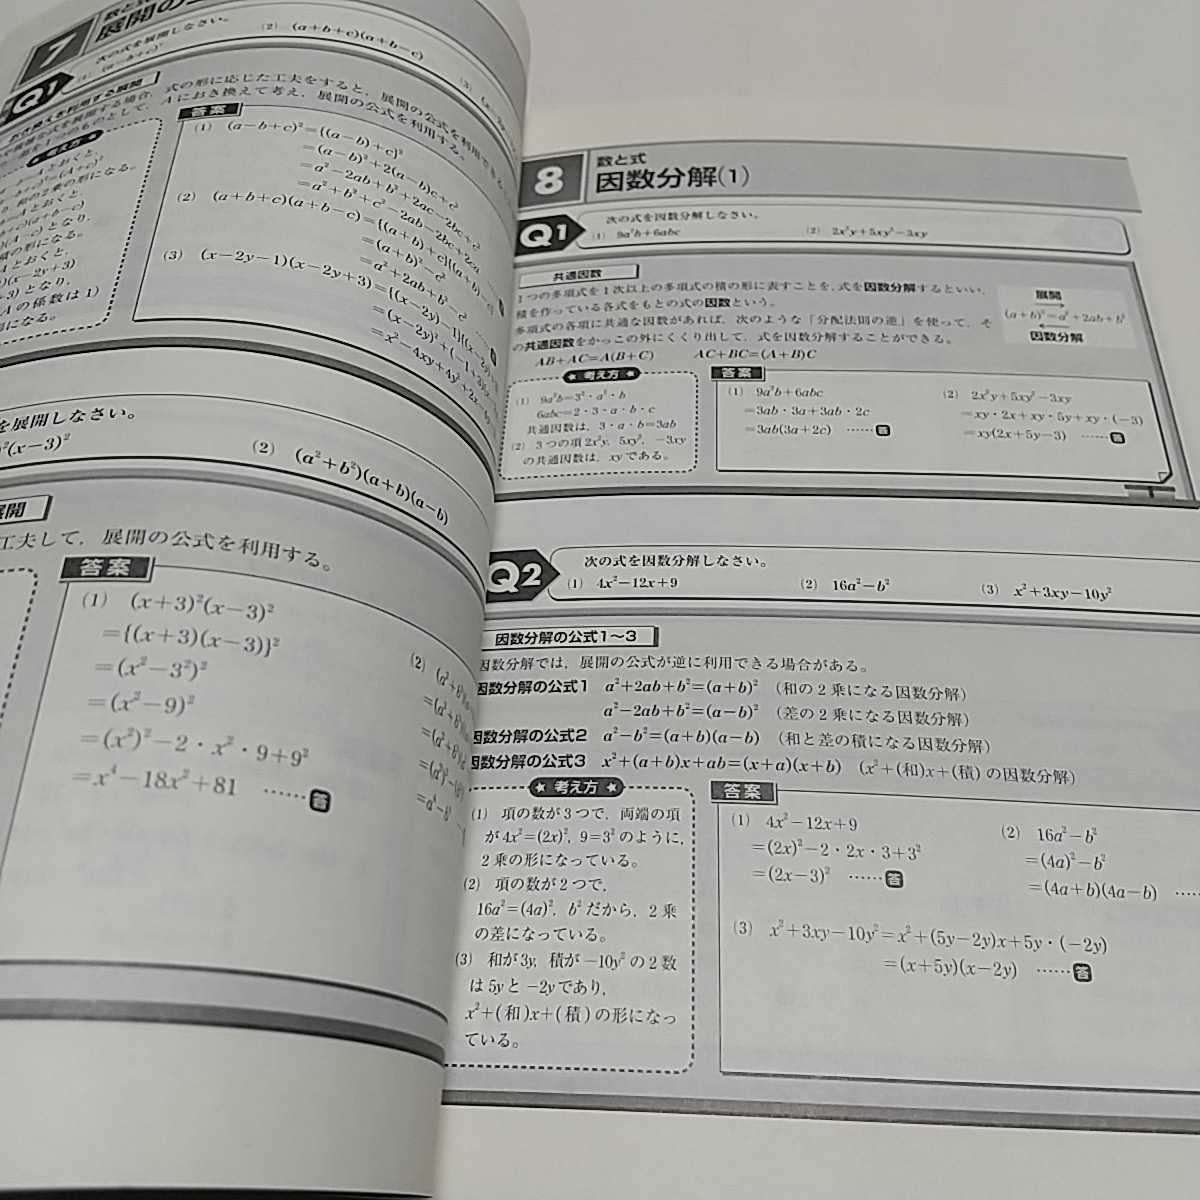 7
数と式
展開の
Q1
次の式を展開しなさい。
(1) (a−b+c)²
(2) (a+b+c)(a+b−c)
(3)
式の形に応じた工夫をすると，展開の公式を利用でき
Aにおき換えて考え，展開の公式を利用する。
★ 考え方 ★
Aとおくと，
和の2乗の形になる。
Aとおくと，
)(A−c)となり，
積の形になる。
Aとおくと，
)(x−2y+3)
+3)となり，
Aの係数は1)
形になる。
答案
(1) (a−b+c)²={(a−b)+c}²
=(a−b)²+2(a−b)c+c²
=a²−2ab+b²+2ac−2bc+c²
=a²+b²+c²−2ab−2bc+2ca
(2) (a+b+c)(a+b−c)={(a+b)+c}{(a+b)−c}
=(a+b)²−c²
=a²+2ab+b²−c²
(3) (x−2y−1)(x−2y+3)={(x−2y)−1}{(x−2y)
=(x−2y)²+(−1+3)(x−2y)
=x²−4xy+4y²+2x
を展開しなさい。
²(x−3)²
(2) (a²+b²)(a+b)(a−b)
展開
工夫して，展開の公式を利用する。
答案
(1) (x+3)²(x−3)²
={(x+3)(x−3)}²
=(x²−3²)²
=(x²−9)²
=(x²)²−2・x²・9+9²
=x⁴−18x²+81 ……答
(2) (a²+b²)
=(a²+b²)
=(a²+b²)
=(a²)²
=a⁴−b⁴
8
数と式
因数分解(1)
Q1
次の式を因数分解しなさい。
(1) 9a²b+6abc
(2) 2x²y+5xy²−3xy
共通因数
1つの多項式を1次以上の多項式の積の形に表すことを，式を因数分解するといい，
積を作っている各式をもとの式の因数という。
多項式の各項に共通な因数があれば，次のような「分配法則の逆」を使って，そ
の共通因数をかっこの外にくくり出して，式を因数分解することができる。
AB+AC=A(B+C) AC+BC=(A+B)C
展開
(a+b)²=a²+2ab+b²
因数分解
★ 考え方 ★
(1) 9a²b=3²・a²・b
6abc=2・3・a・b・c
共通因数は，3・a・b=3ab
(2) 3つの項2x²y，5xy²，−3xy
の共通因数は，xyである。
答案
(1) 9a²b+6abc
=3ab・3a+3ab・2c
=3ab(3a+2c) ……答
(2) 2x²y+5xy²−3xy
=xy・2x+xy・5y+xy・(−3)
=xy(2x+5y−3) ……答
Q2
次の式を因数分解しなさい。
(1) 4x²−12x+9
(2) 16a²−b²
(3) x²+3xy−10y²
因数分解の公式1〜3
因数分解では，展開の公式が逆に利用できる場合がある。
因数分解の公式1 a²+2ab+b²=(a+b)² (和の2乗になる因数分解)
a²−2ab+b²=(a−b)² (差の2乗になる因数分解)
因数分解の公式2 a²−b²=(a+b)(a−b) (和と差の積になる因数分解)
因数分解の公式3 x²+(a+b)x+ab=(x+a)(x+b) (x²+(和)x+(積)の因数分解)
★ 考え方 ★
(1) 項の数が3つで，両端の項
が4x²=(2x)²，9=3²のように，
2乗の形になっている。
(2) 項の数が2つで，
16a²=(4a)²，b²だから，2乗
の差になっている。
(3) 和が3y，積が−10y²の2数
は5yと−2yであり，
x²+(和)x+(積)の形になっ
ている。
答案
(1) 4x²−12x+9
=(2x)²−2・2x・3+3²
=(2x−3)² ……答
(2) 16a²−b²
=(4a)²−b²
=(4a+b)(4a−b) ……
(3) x²+3xy−10y²=x²+(5y−2y)x+5y・(−2y)
=(x+5y)(x−2y) ……答